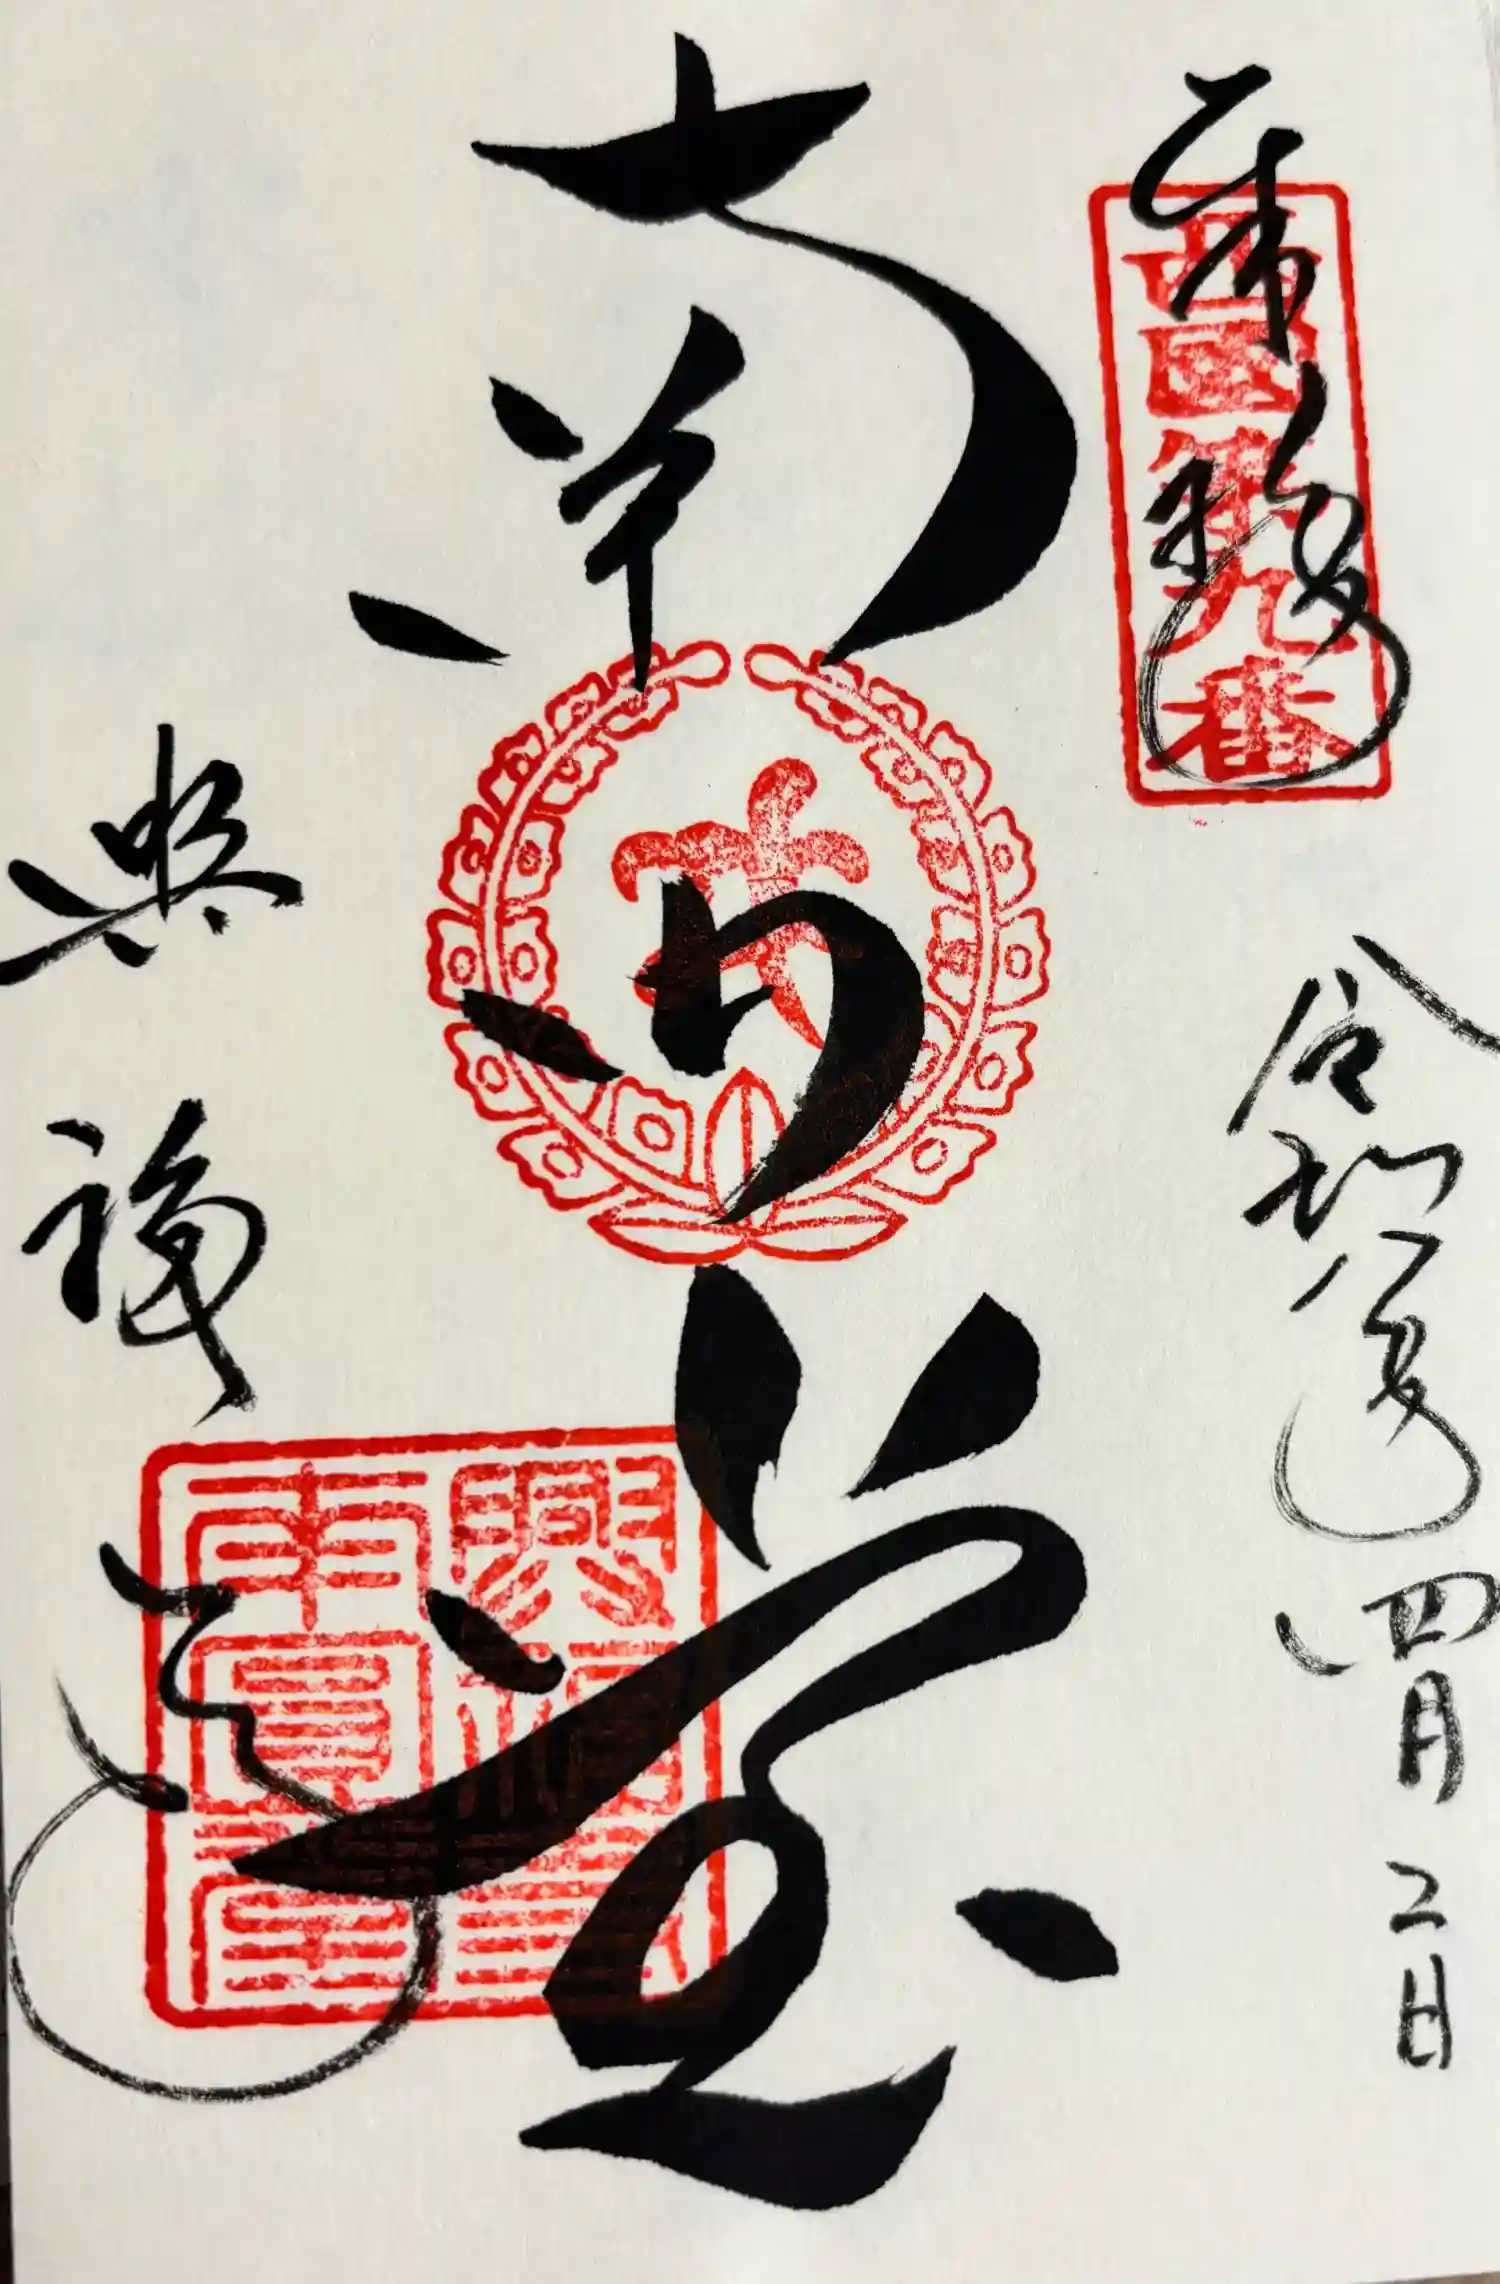 奉拝
西國第九番
令和
四月二日
南円堂
興福寺
興福寺
南圓堂